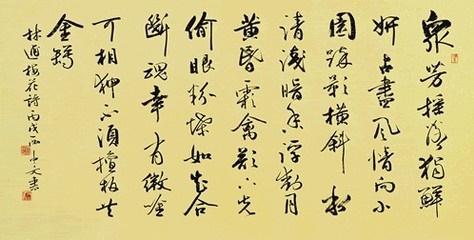 眾芳摇落獨鮮
妍占盡風情向小
園疎影橫斜水
清淺暗香浮動月
黄昏霜禽欲下先
偷眼粉蝶如知合
斷魂幸有微吟
可相狎不須檀板共
金樽
林逋梅花詩丙戌中文書